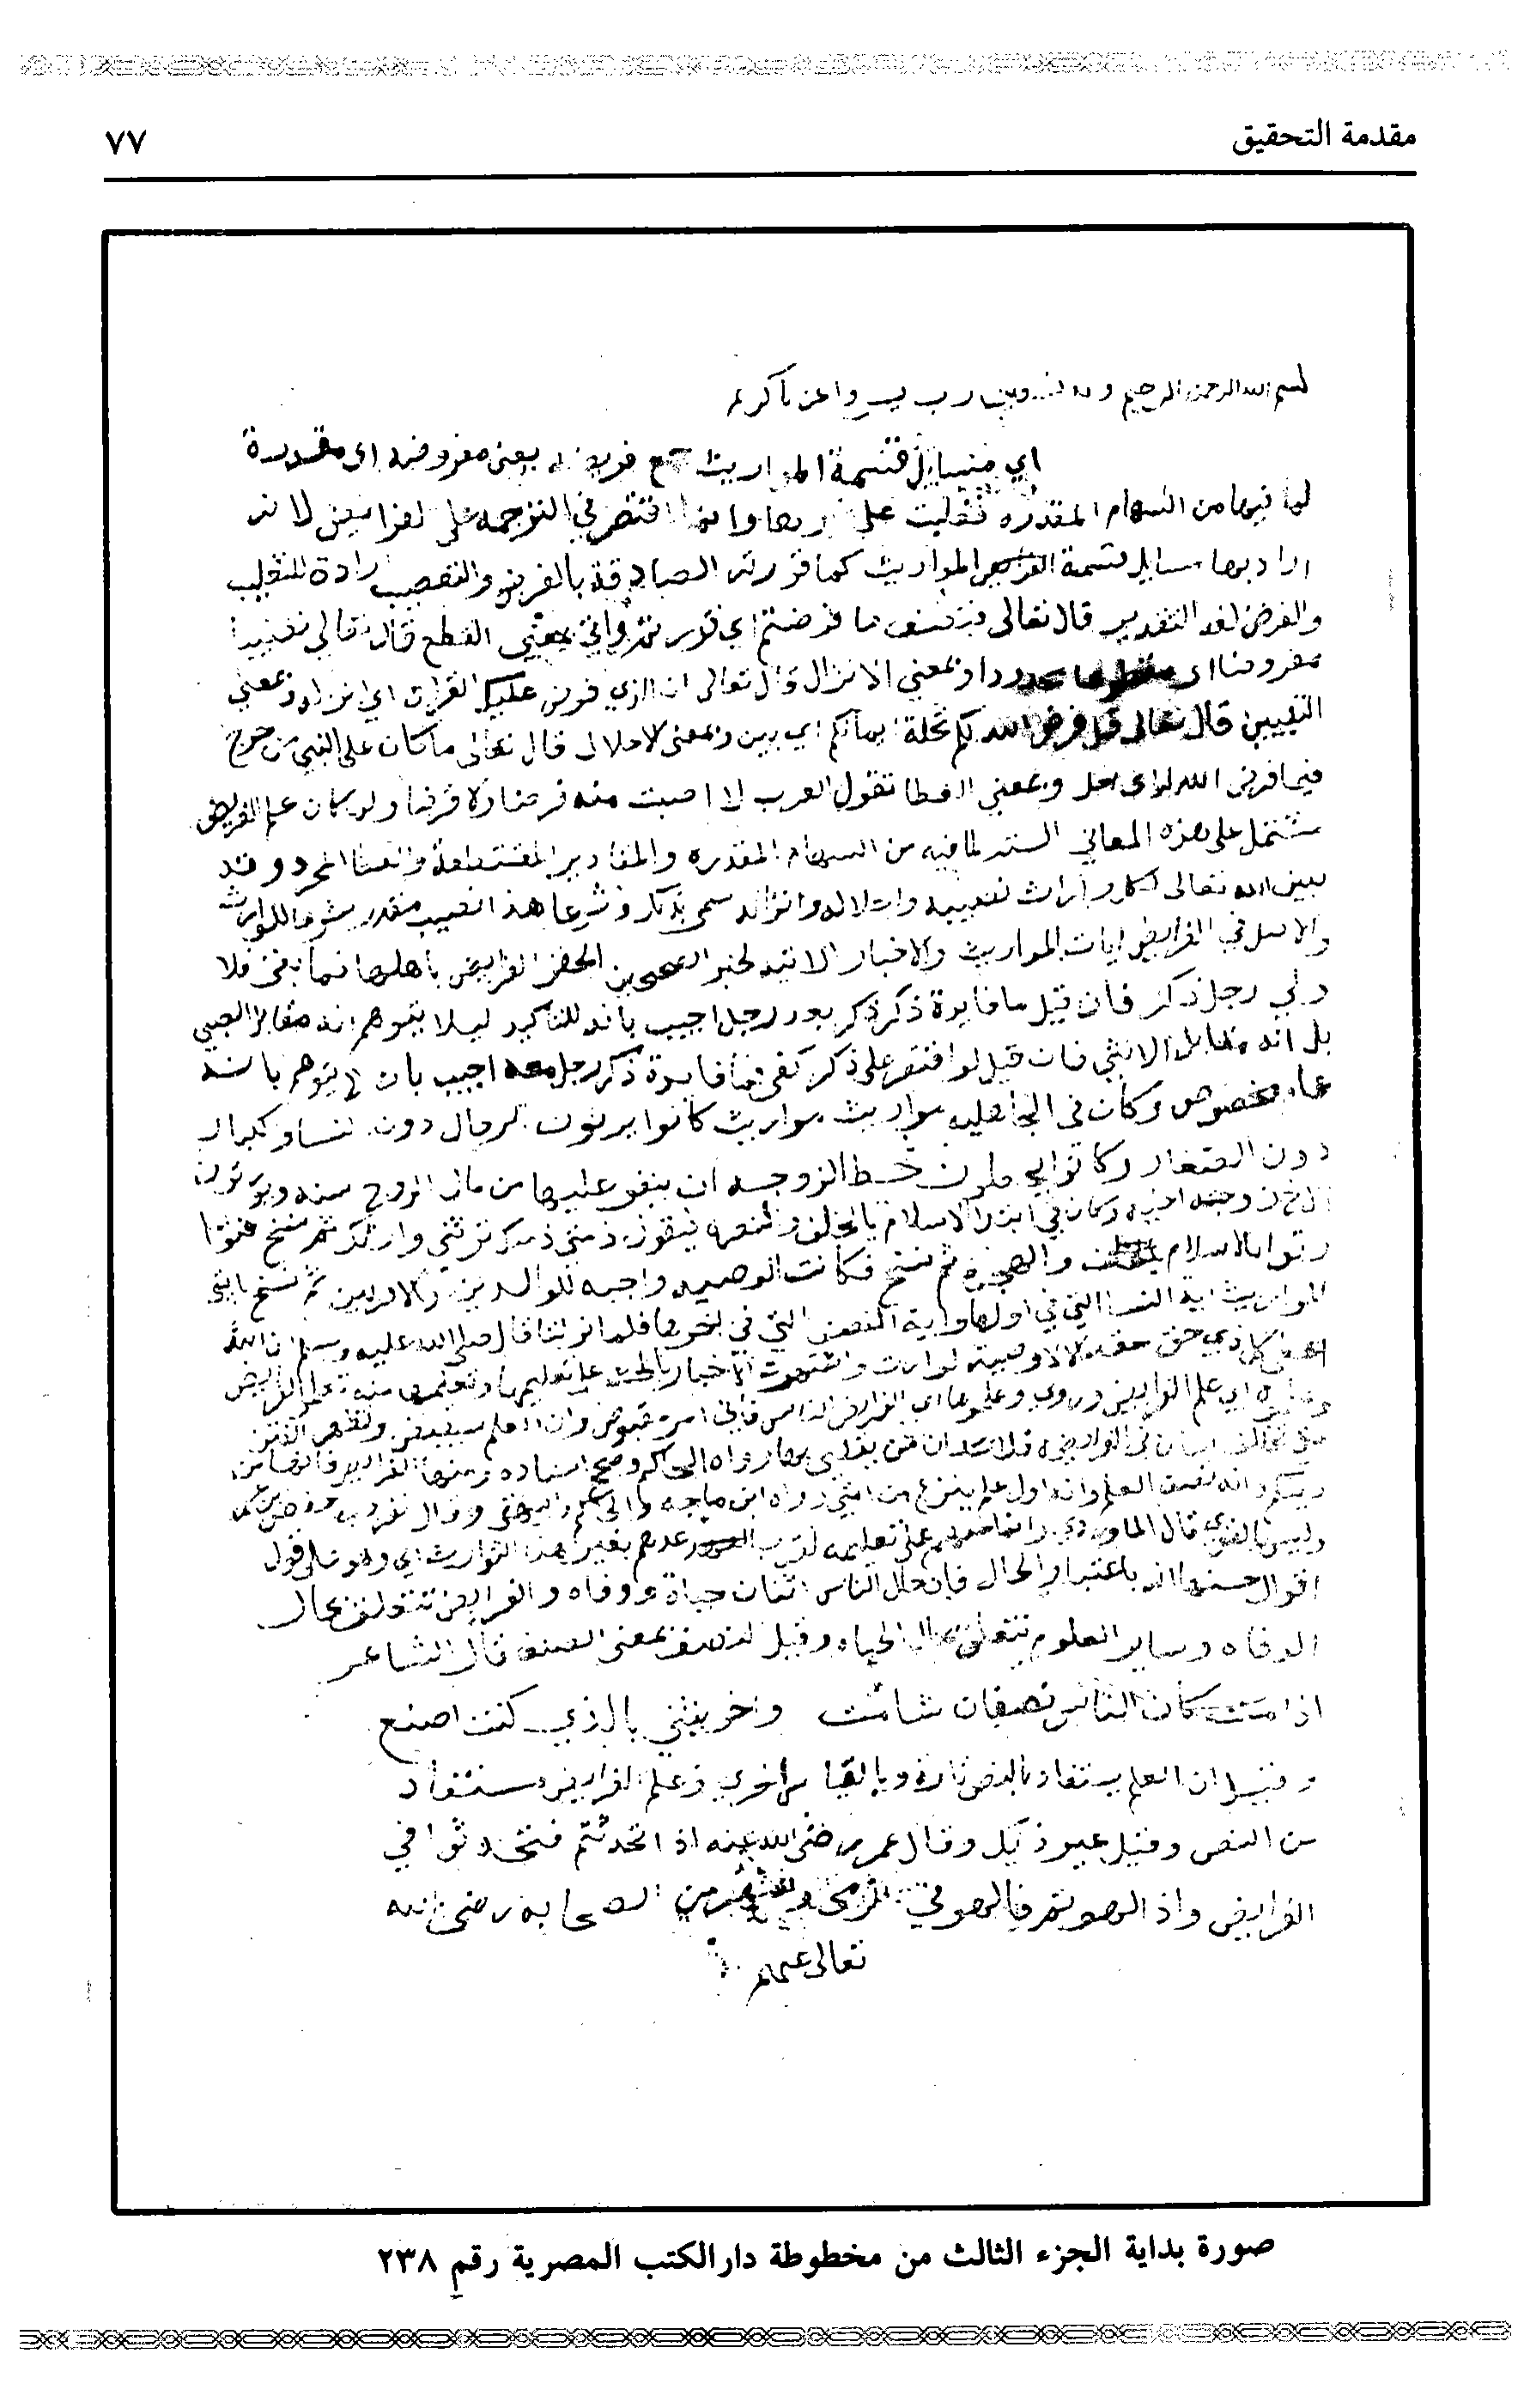 مقدمة التحقيق
٧٧
بسم الله الرحمن الرحيم وبه نستعين رب يسر واعن يا كريم
اي مسايل قسمة المواريث جمع فريضه بمعنى مفروضه اي مقدرة
لما فيها من السهام المقدره فغلبت على غيرها وانما اقتصر في الترجمه على الفرايض لانه
اراد بها مسايل قسمة المواريث كما قررته الصادقة بالفرض والتعصيب ارادة للتغليب
والفرض لغه التقدير قال تعالى فنصف ما فرضتم اي قدرتم وياتي بمعنى القطع قال تعالى نصيبا
مفروضا اي محدودا وبمعنى الانزال قال تعالى ان الذي فرض عليك القران اي انزله وبمعنى
التبيين قال تعالى قد فرض الله لكم تحلة ايمانكم اي بين وبمعنى الاحلال قال تعالى ما كان على النبي من حرج
فيما فرض الله له اي احل وبمعنى العطا تقول العرب لا اصبت منه فرضا ولا قرضا ولما كان علم الفرايض
مشتمل على هذه المعاني السته لما فيه من السهام المقدره والمقادير المقتطعة والعطا المجرد وقد
بين الله تعالى لكل وارث نصيبه واحلاله وانزاله سمي بذلك وشرعا هنا نصيب مقدر شرعا للوارث
والاصل في الفرايض ايات المواريث والاخبار الاتيه كخبر الصحيحين الحقوا الفرايض باهلها فما بقي فلا
ولي رجل ذكر فان قيل ما فايدة ذكر ذكر بعد رجل اجيب بانه للتاكيد ليلا يتوهم انه مقابل الصبي
بل انه مقابل الانثى فان قيل لو اقتصر على ذكر كفى فما فايدة ذكر رجل معه اجيب بان لا يتوهم بانه
عام مخصوص وكان في الجاهليه مواريث كانوا يورثون الرجال دون النسا والكبار
دون الصغار وكانوا يجعلون حظ الزوجه ان ينفق عليها من مال الزوج سنه ويورثون
الاخ زوجة اخيه وكان في ابتدا الاسلام بالحلف والنصره فيقول ذمتي ذمتك ترثني وارثك ثم نسخ فتوا
رثوا بالاسلام والهجره ثم نسخ فكانت الوصيه واجبه للوالدين والاقربين ثم نسخ بايتي
المواريث اية النسا التي في اولها واية الصيف التي في اخرها فلما نزلتا قال صلى الله عليه وسلم ان الله
اعطى كل ذي حق حقه الا لا وصية لوارث واشتهرت الاخبار بالحث على تعليمها وتعلمها منه تعلموا الفرايض
وعلموه اي علم الفرايض وروي وعلموها اي الفرايض الناس فاني امرء مقبوض وان العلم سيقبض وتظهر الفتن
حتى يختلف اثنان في الفريضه فلا يجدان من يقضي بها رواه الحاكم وصحح اسناده ومنها تعلموا الفرايض فانها من
دينكم وانه نصف العلم وانه اول علم ينزع من امتي رواه ابن ماجه والحاكم والبيهقي وقال تفرد به حفص بن عمر
وليس بالقوي قال الماوردي وانما حثهم على تعليمه لقرب عهدهم بغير هذا التوارث اي وهو على قول
اقوال احسنها انه باعتبار الحال فان حال الناس اثنان حياة ووفاه والفرايض تتعلق بحال
الوفاه وساير العلوم تتعلق بحال الحياه وقيل النصف بمعنى الصنف قال الشاعر
اذا مت كان الناس نصفان شامت واخر يثني بالذي كنت اصنع
وقيل ان العلم يستفاد بالنص تارة وبالقياس اخرى وعلم الفرايض مستفاد
من النص وقيل غير ذلك وقال عمر رضي الله عنه اذا تحدثتم فتحدثوا في
الفرايض واذا لهوتم فالهوا في الرمي واشتهر من الصحابه رضي الله
تعالى عنهم
صورة بداية الجزء الثالث من مخطوطة دار الكتب المصرية رقم ٢٣٨